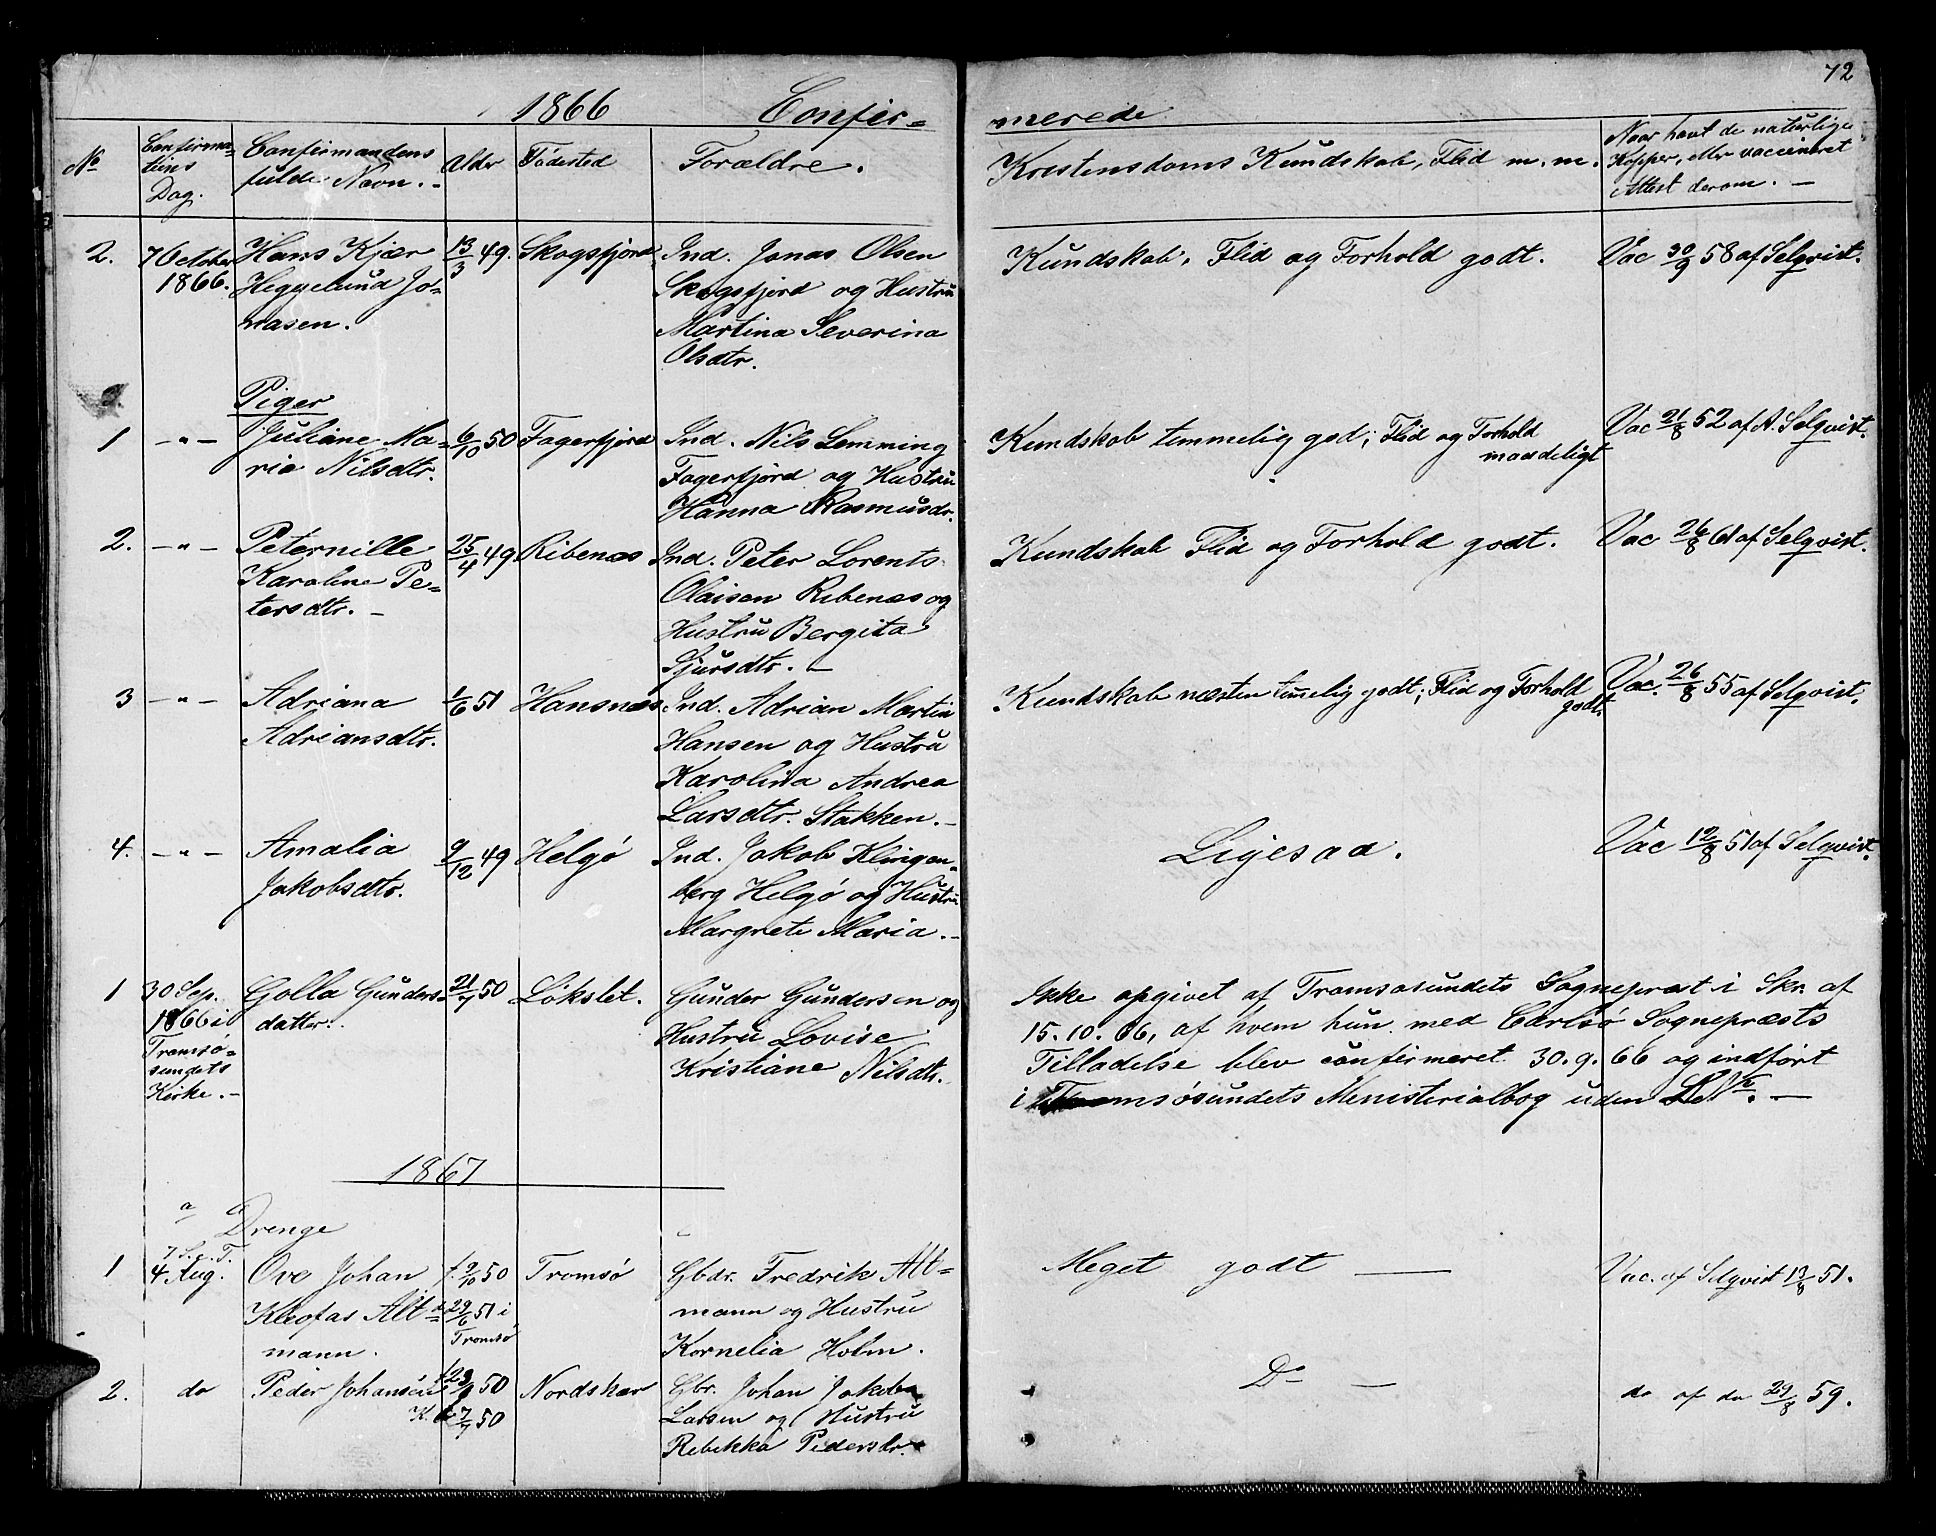 72
1866 Confir=
merede
No
Confirma=
tions
Dag.
Confirmandens
fulde Navn. -
Alder
Födested
Forældre.
Kristendoms Kundskab, Flid m. m.
Naar havt de naturlige
Kopper, eller vaccineret
Attest derom. -
2. 7 October Hans Kjær 13/3 49. Skogsfjord Ind. Jonas Olsen Kundskab, Flid og Forhold godt. Vac 30/9 58 af Selqvist.
1866. Heggelund Jo= Skogsfjord og Hustru
nasen. Martina Severina
Olsdtr.
Piger
1 -"- Juliane Ma= 6/10 50 Fagerfjord Ind. Nils Lemming Kundskab temmelig god; Flid og Forhold Vac 21/8 52 af A. Selqvist.
maadeligt
rie Nilsdtr. Fagerfjord og Hustru
Hanna Rasmusdr.
2. -"- Peternille 25/4 49 Ribenæs Ind. Peter Lorents Kundskab Flid og Forhold godt. Vac 26/8 61 af Selqvist.
Karoline Pe= Olaisen Ribenæs og
tersdtr. - Hustru Bergita
Sjursdtr. -
3 -"- Adriana 1/6 51 Hansnæs Ind. Adrian Martin Kundskab næsten temelig godt; Flid og Forhold Vac. 26/8 55 af Selqvist.
godt.
Adriansdtr. Hansen og Hustru
Karolina Andrea
Larsdtr. Stakken. -
4. -"- Amalia 9/12 49 Helgö Ind. Jakob Klingen= Ligesaa. Vac 12/8 51 af Selqvist.
Jakobsdtr. berg Helgö og Hustru
Margrete Maria. -
1 30 Sep. Golla Gunders= 21/7 50 Lökslet. Gunder Gundersen og Ikke opgivet af Tromsøsundets Sognepræst i Skr. af
1866 i datter. Hustru Lovise 15.10.66, af hvem hun med Carlsö Sognepræsts
Tromsö= Kristiane Nilsdtr. Tilladelse blev confirmeret 30.9.66 og indfört
sundets i Tromsösundets Ministerialbog uden No. -
Kirke. -
1867
a
Drenge
7 S. e. T.
1 4 Aug. Ove Johan f. 9/10 50 Tromsö Gbdr. Fredrik Alt= Meget godt — Vac. af Selqvist 13/8 51.
Kleofas Alt= 29/6 51 i mann og Hustru
Tromsö
mann. Kornelia Holm.
2. do Peder Johansen 50 Nordskar Gbr. Johan Jakob Do — do af do 29/8 59.
7/7 50 Larsen og Hustru
Rebekka Pedersdr.